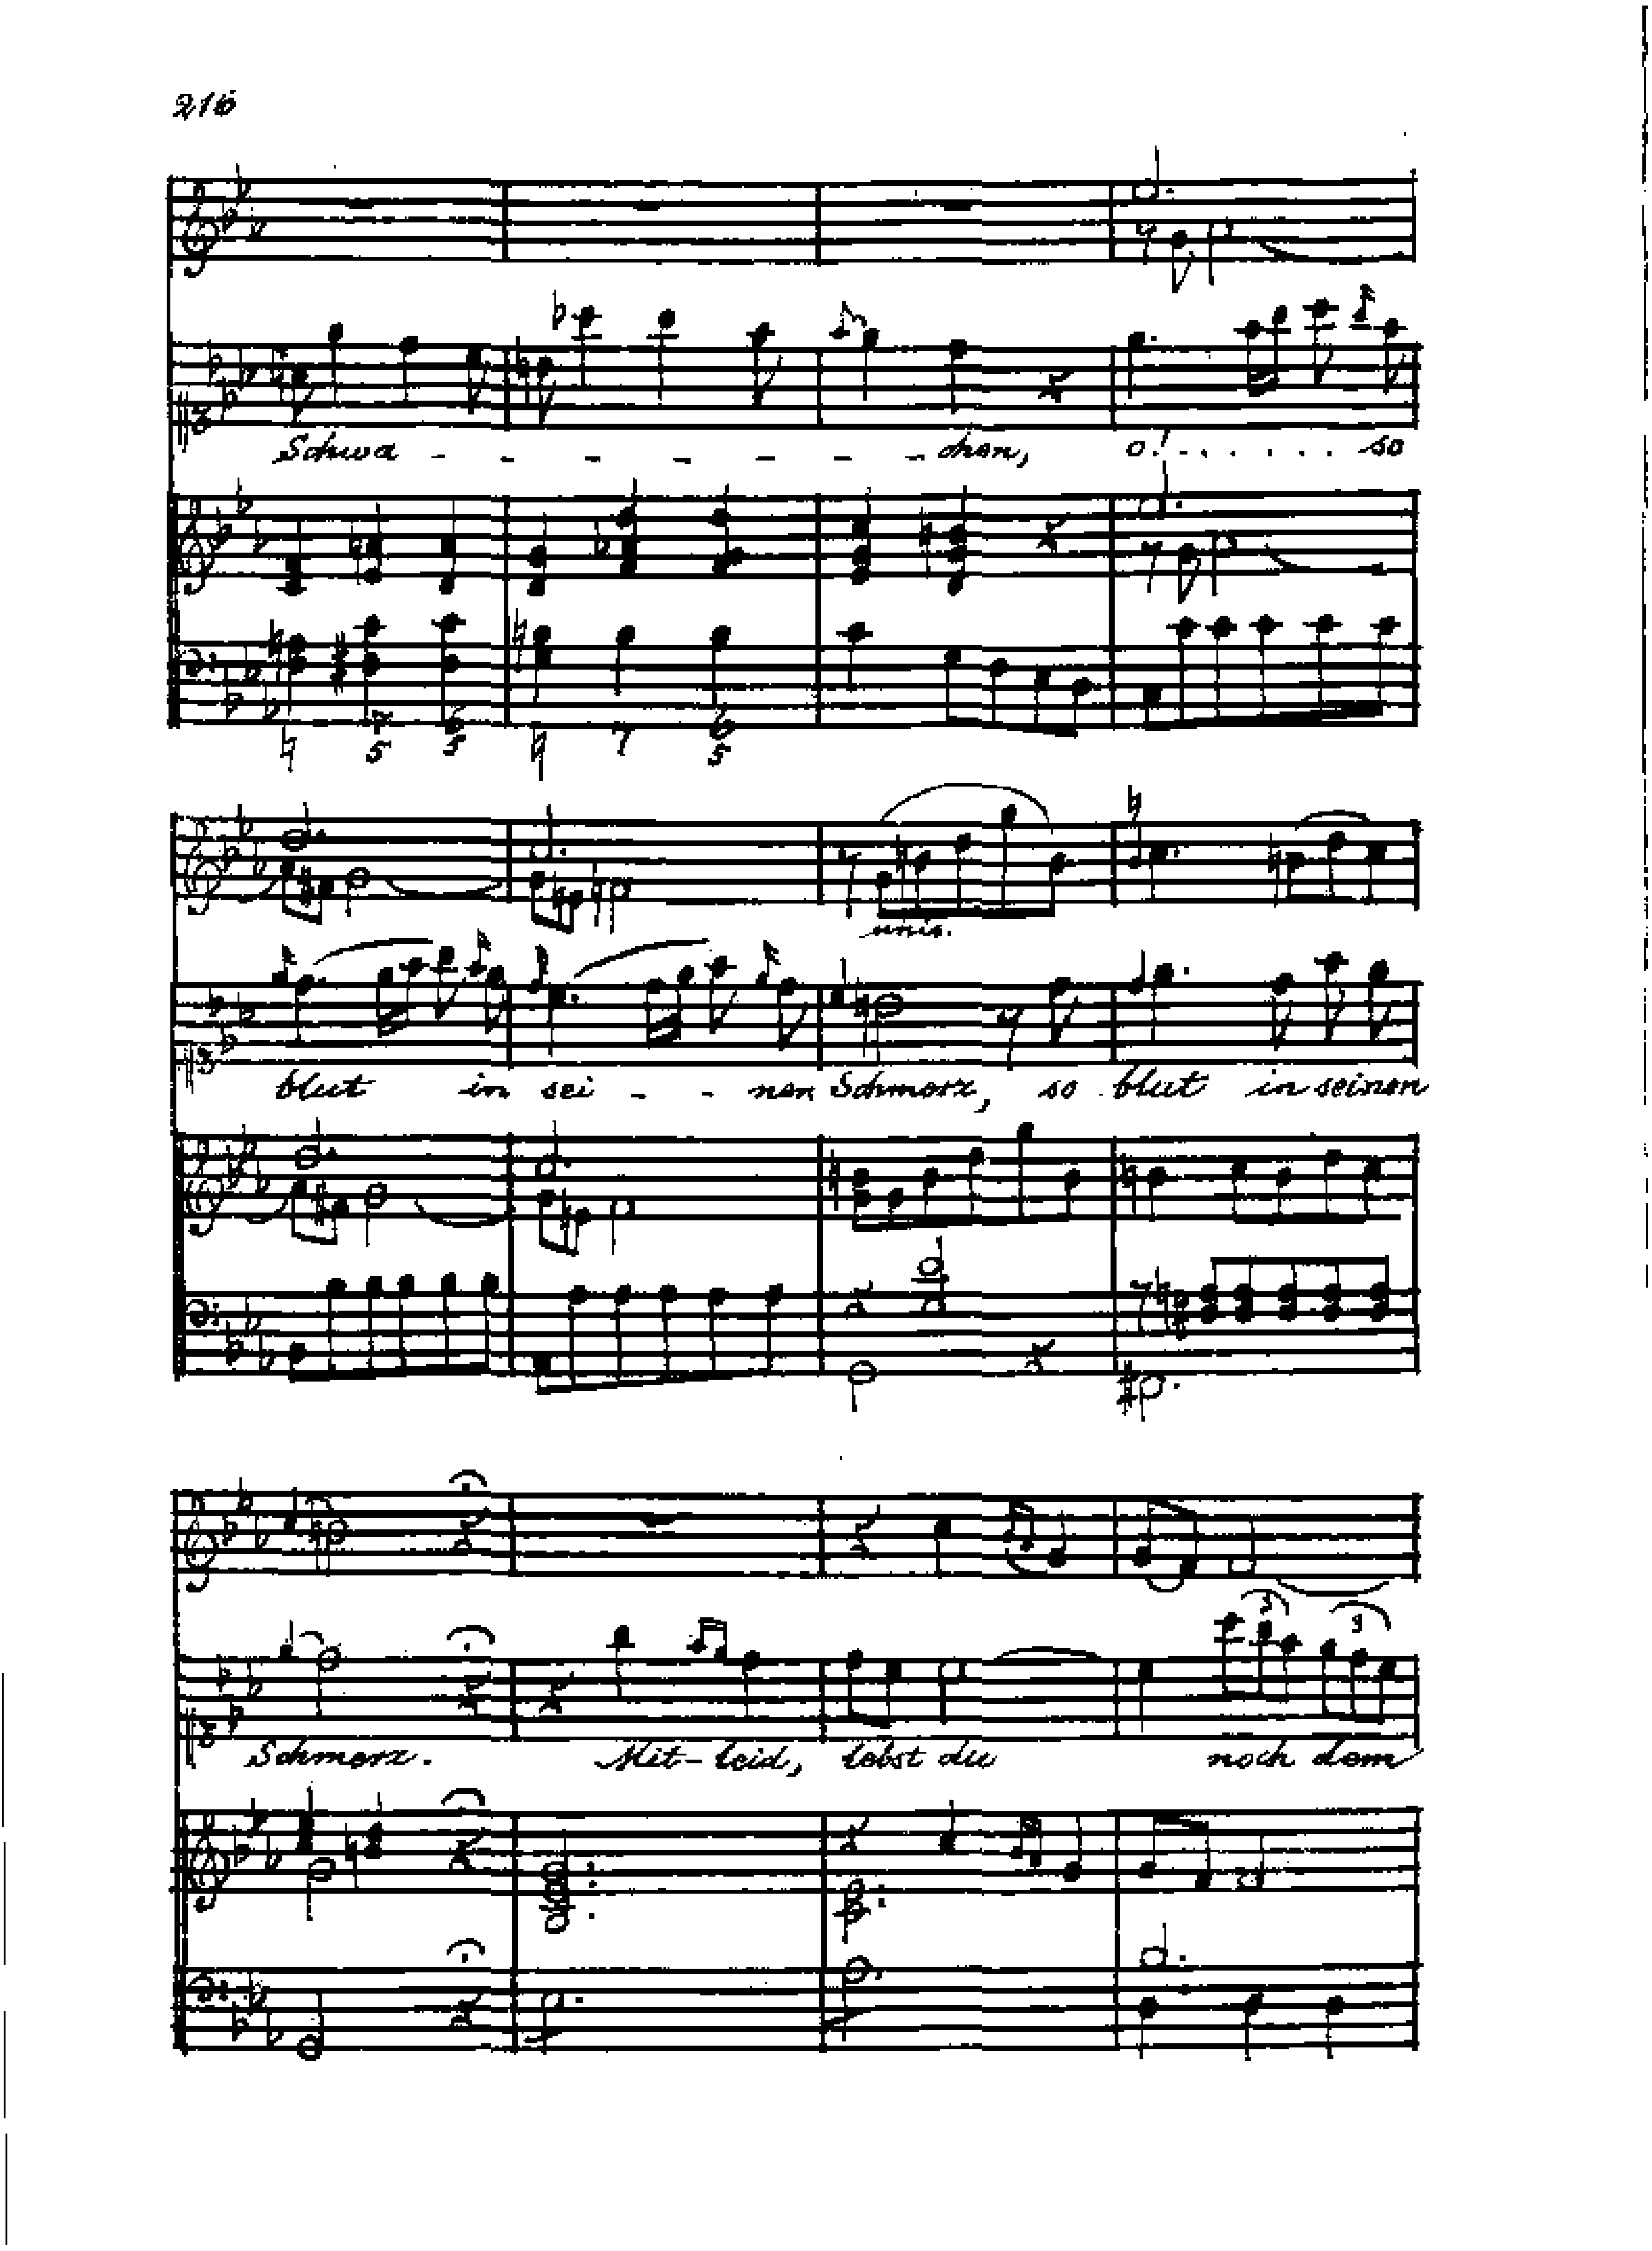 216
Schwa - - - - - - - chen, o! . . . . . . so
♮ 7 6 ♮ 7 6
5 5 5
unis.
blut in sei - - - nen Schmerz, so blut in seinen
Schmerz. Mit-leid, lebst du noch dem
3 3